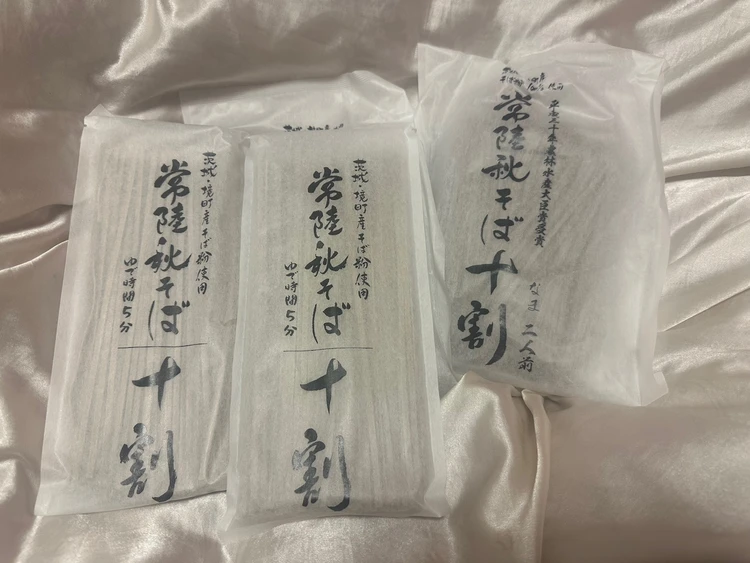 茨城・境町産そば粉使用
常陸秋そば
ゆで時間5分
十割
茨城・境町産そば粉使用
常陸秋そば
ゆで時間5分
十割
平成三十年農林水産大臣賞受賞
常陸秋そば十割
なま 二人前